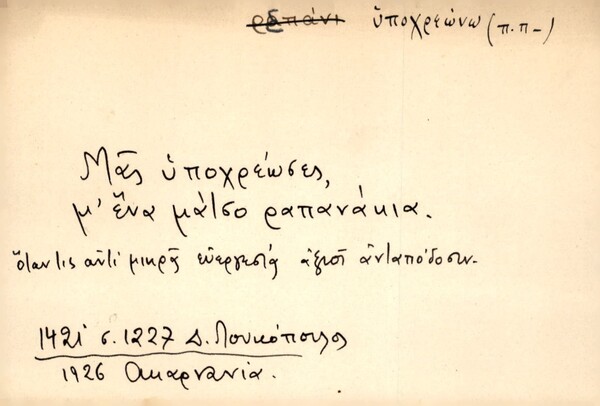 ραπάνι ὑποχρεώνω (π.π-)
Μᾶς ὑποχρέωσες,
μ' ἕνα μάτσο ραπανάκια.
ὅταν τις ἀντί μικρᾶς εὐεργεσίας ἀξιοῖ ἀνταπόδοσιν.
1421 σ. 1227 Δ. Λουκόπουλος
1926 Ακαρνανία.